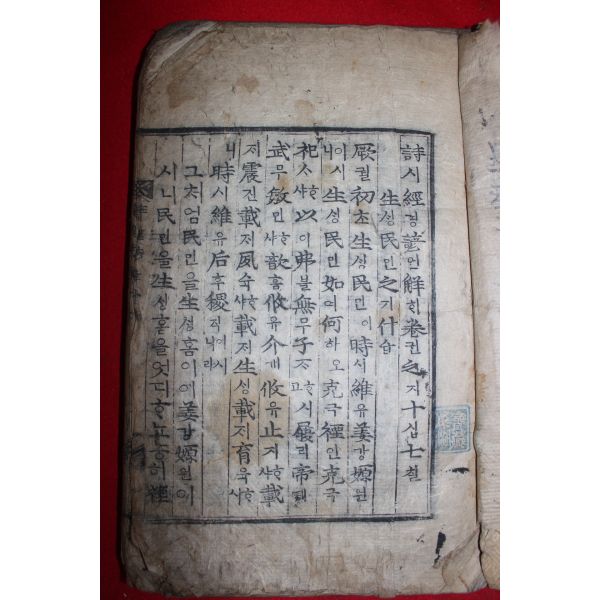 詩시經경諺언解ᄒᆡ卷권之지十십七칠
生ᄉᆡᆼ民민之지什십
厥궐初초生ᄉᆡᆼ民민이時시維유姜강嫄원
이시니生ᄉᆡᆼ民민如여何하오克극禋인克극
祀ᄉᆞᄒᆞ샤以이弗불無무子ᄌᆞᄒᆞ시고履리帝뎨
武무敏민ᄒᆞ샤歆흠攸유介개攸유止지ᄒᆞ샤載
ᄌᆡ震진載ᄌᆡ夙숙ᄒᆞ샤載ᄌᆡ生ᄉᆡᆼ載ᄌᆡ育육ᄒᆞ샤
니時시維유后후稷직이시니라
그처엄民민을生ᄉᆡᆼ홈이이姜강嫄원이
시니民민을生ᄉᆡᆼ홈을엇디ᄒᆞ뇨능히禋